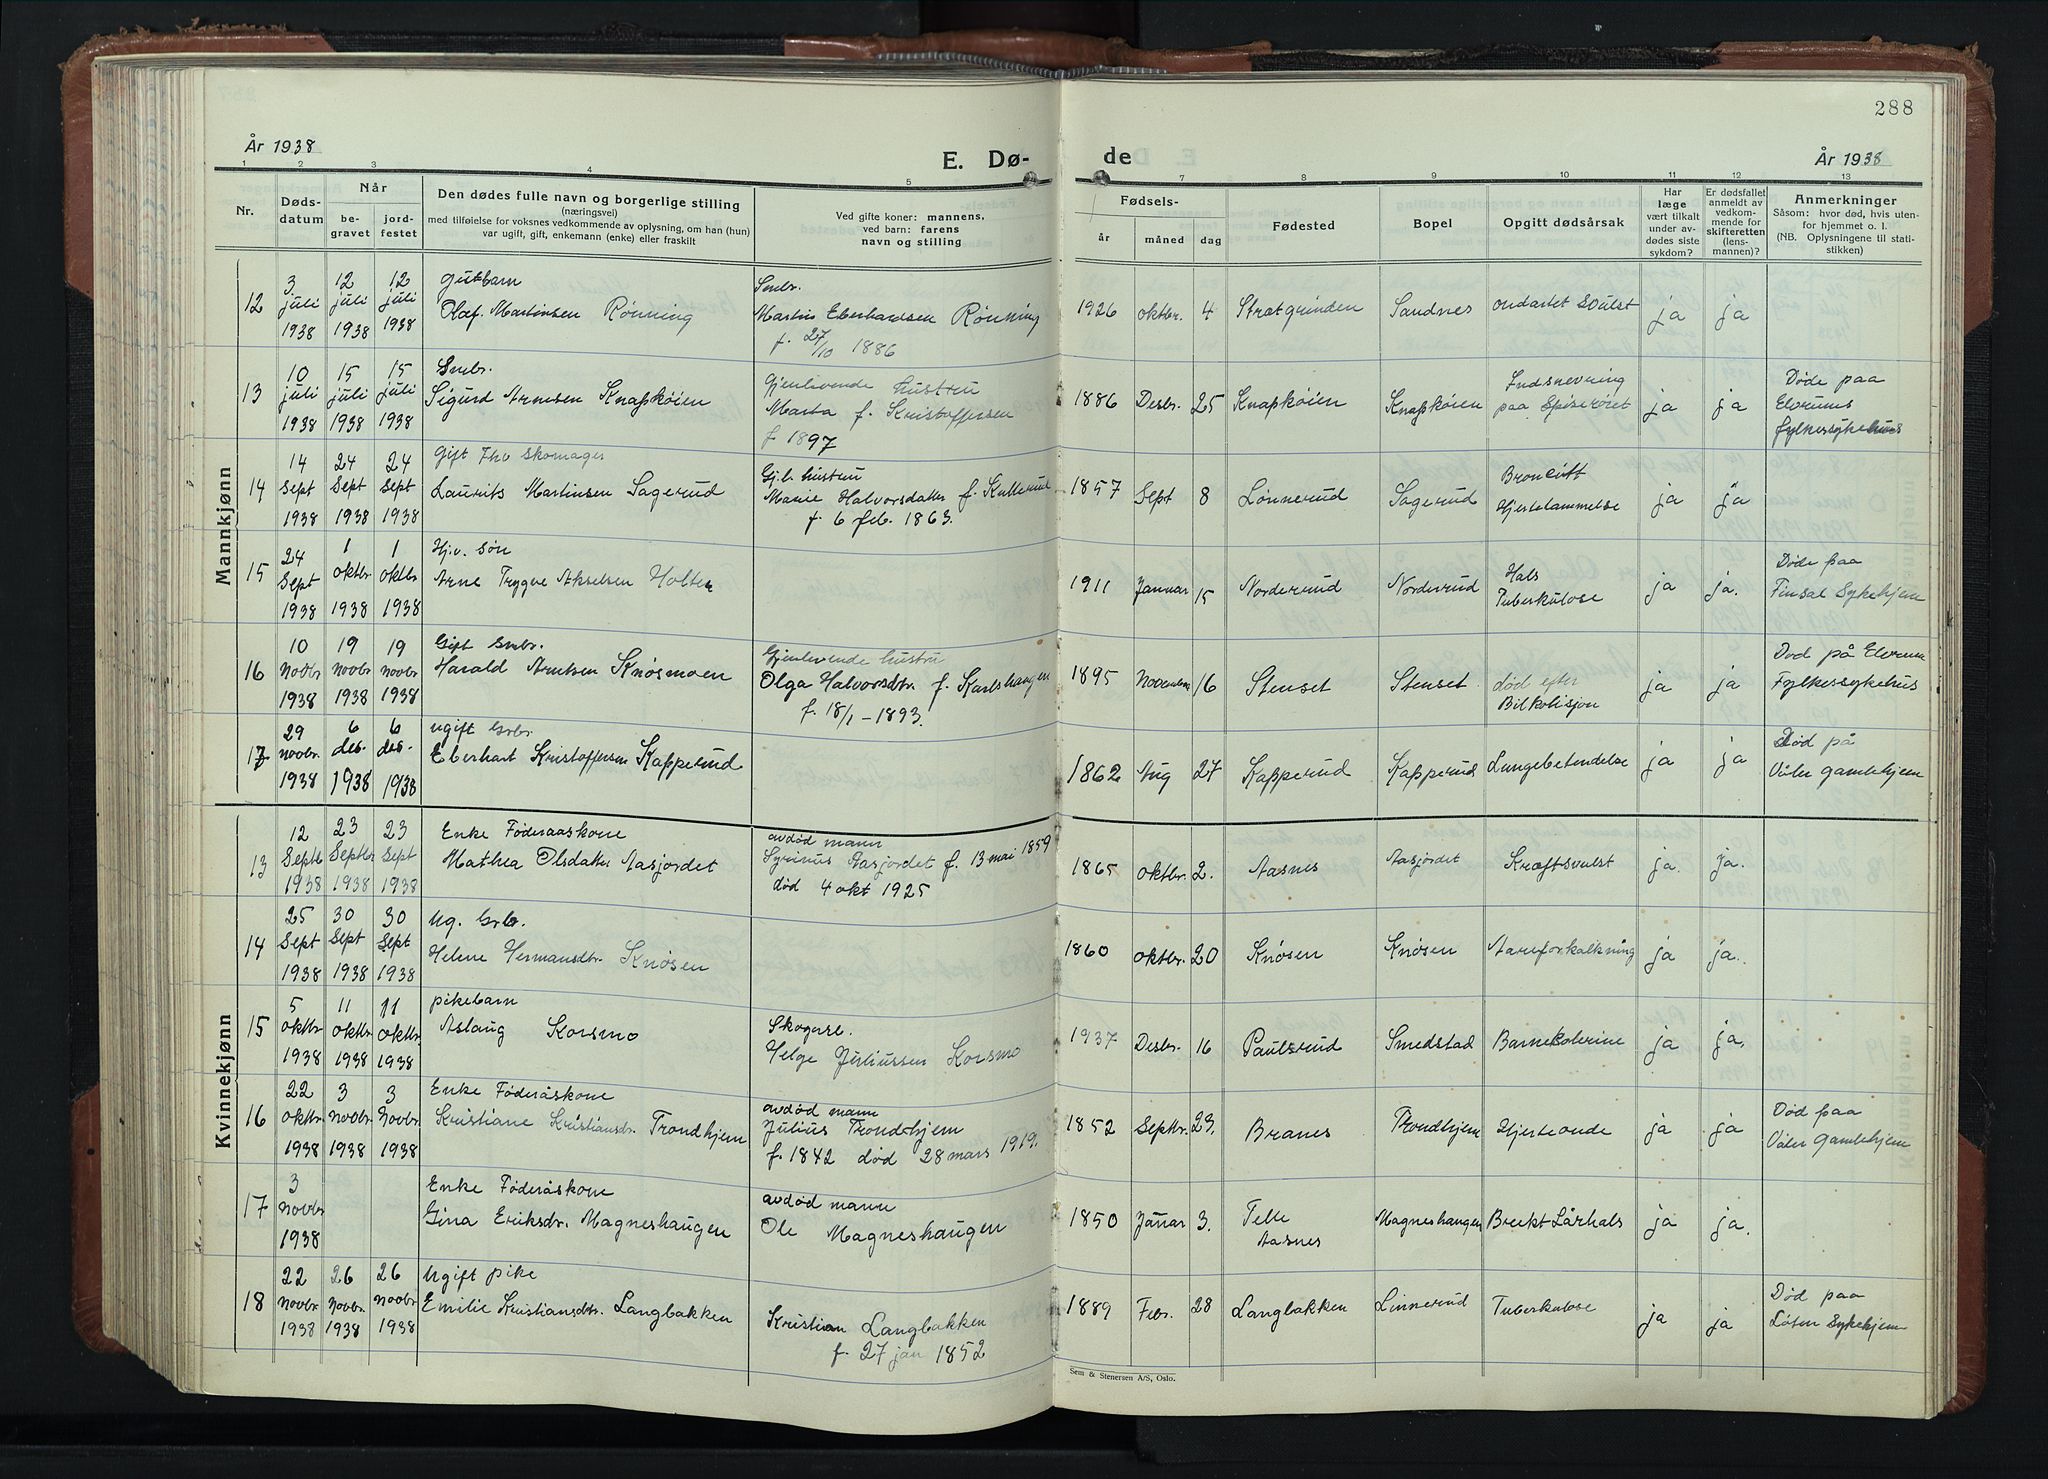 288
År 1938
E. Dø-
de
År 1938
1 2 3 4 5 7 8 9 10 11 12 13
Nr.
Døds-
datum
Når
be-
gravet
jord-
festet
Den dødes fulle navn og borgerlige stilling
(næringsvei)
med tilføielse for voksnes vedkommende av oplysning, om han (hun)
var ugift, gift, enkemann (enke) eller fraskilt
Ved gifte koner: mannens,
ved barn: farens
navn og stilling
Fødsels-
år
måned
dag
Fødested
Bopel
Opgitt dødsårsak
Har
læge
vært tilkalt
under av-
dødes siste
sykdom?
Er dødsfallet
anmeldt av
vedkom-
mende for
skifteretten
(lens-
mannen)?
Anmerkninger
Såsom: hvor død, hvis uten-
for hjemmet o. l.
(NB. Oplysningene til stati-
stikken)
Mannkjønn
12
3 juli 1938
12 juli 1938
12 juli 1938
Gutbarn
Olaf. Martinsen Rönning
Smbr.
Martin Eberhardsen Rönning
f. 27/10 1886
1926 oktbr. 4 Strætgrinden Sandnes ondartet Svulst ja ja
13
10 juli 1938
15 juli 1938
15 juli 1938
Smbr.
Sigurd Arnesen Knapkøien
Gjenlevende hustru
Marta f. Kristoffersen
f 1897
1886 Desbr. 25 Knapkøien Knapkøien
Indsnevring
paa Spiserøret
ja ja
Døde paa
Elverums
fylkessykehus
14
14 Sept 1938
24 Sept 1938
24 Sept 1938
Gift Fhv Skomager
Laurits Martinsen Sagerud
Gj.l. hustru
Marie Halvorsdatter f. Kullerud
f. 6 feb. 1863.
1857 Sept 8 Lønnerud Sagerud
Broncitt
Hjertelammelse
ja ja
15
24 Sept 1938
1 oktbr 1938
1 oktbr 1938
Hjv. søn
Arne Trygve Akselsen Holter
1911 Januar 15 Norderud Norderud
Hals
Tuberkulose
ja ja.
Døde paa
Finsal Sykehjem
16
10 Novbr 1938
19 novbr 1938
19 novbr 1938
Gift Smbr.
Harald Arntsen Knøsmoen
Gjenlevende hustru
Olga Halvorsdtr. f. Karlshaugen
f. 18/1 – 1893.
1895 November 16 Stenset Stenset
død efter
Bilkolisjon
ja ja
Død på Elverum
Fylkessykehus
17
29 novbr. 1938
6 des. 1938
6 des. 1938
ugift Grbr.
Eberhart Kristoffersen Kapperud
1862 Aug 27 Kapperud Kapperud Lungebetendelse ja ja
Død på
Våler gamlehjem
Kvinnekjønn
13
12 Septbr 1938
23 Septbr 1938
23 Sept 1938
Enke Føderaaskone
Mathea Olsdatter Aasjordet
avdød mann
Syrinus Aasjordet f. 13 mai 1859
død 4 okt 1925
1865 oktbr. 2. Aasnes Aasjordet Kræftsvulst ja. ja.
14
25 Sept 1938
30 Sept 1938
30 Sept 1938
Ug. Grbr.
Helene Hermansdtr. Knøsen
1860 oktbr. 20 Knøsen Knøsen Aareforkalkning ja ja.
15
5 oktbr 1938
11 oktbr 1938
11 oktbr 1938
pikebarn
Aslaug Korsmo
Skogarb.
Helge Juliussen Korsmo
1937 Desbr. 16 Paulsrud Smedstad Barnekolerine ja ja.
16
22 oktbr. 1938
3 novbr 1938
3 Novbr. 1938
Enke Føderåskone
Kristiane Kristiansdr. Trondhjem
avdød mann
Julius Trondhjem
f. 1842 død 28 mars 1919.
1852 Septbr. 23. Branes Trondhjem Hjerteonde ja ja
Død paa
Våler Gamlehjem
17
3 novbr 1938
Enke Føderåskone
Gina Eriksdr. Magneshaugen
avdød mann
Ole Magneshaugen
1850 Januar 3.
Telle
Aasnes
Magneshaugen Brekt Lårhals ja ja.
18
22 novbr. 1938
26 Novbr 1938
26 novbr 1938
Ugift pike
Emilie Kristiansdtr. Langbakken
Kristian Langbakken
f. 27 jan 1852
1889 Febr. 28 Langbakken Linnerud Tuberkulose ja ja
Død paa
Løten Sykehjem
Sem & Stenersen A/S, Oslo.